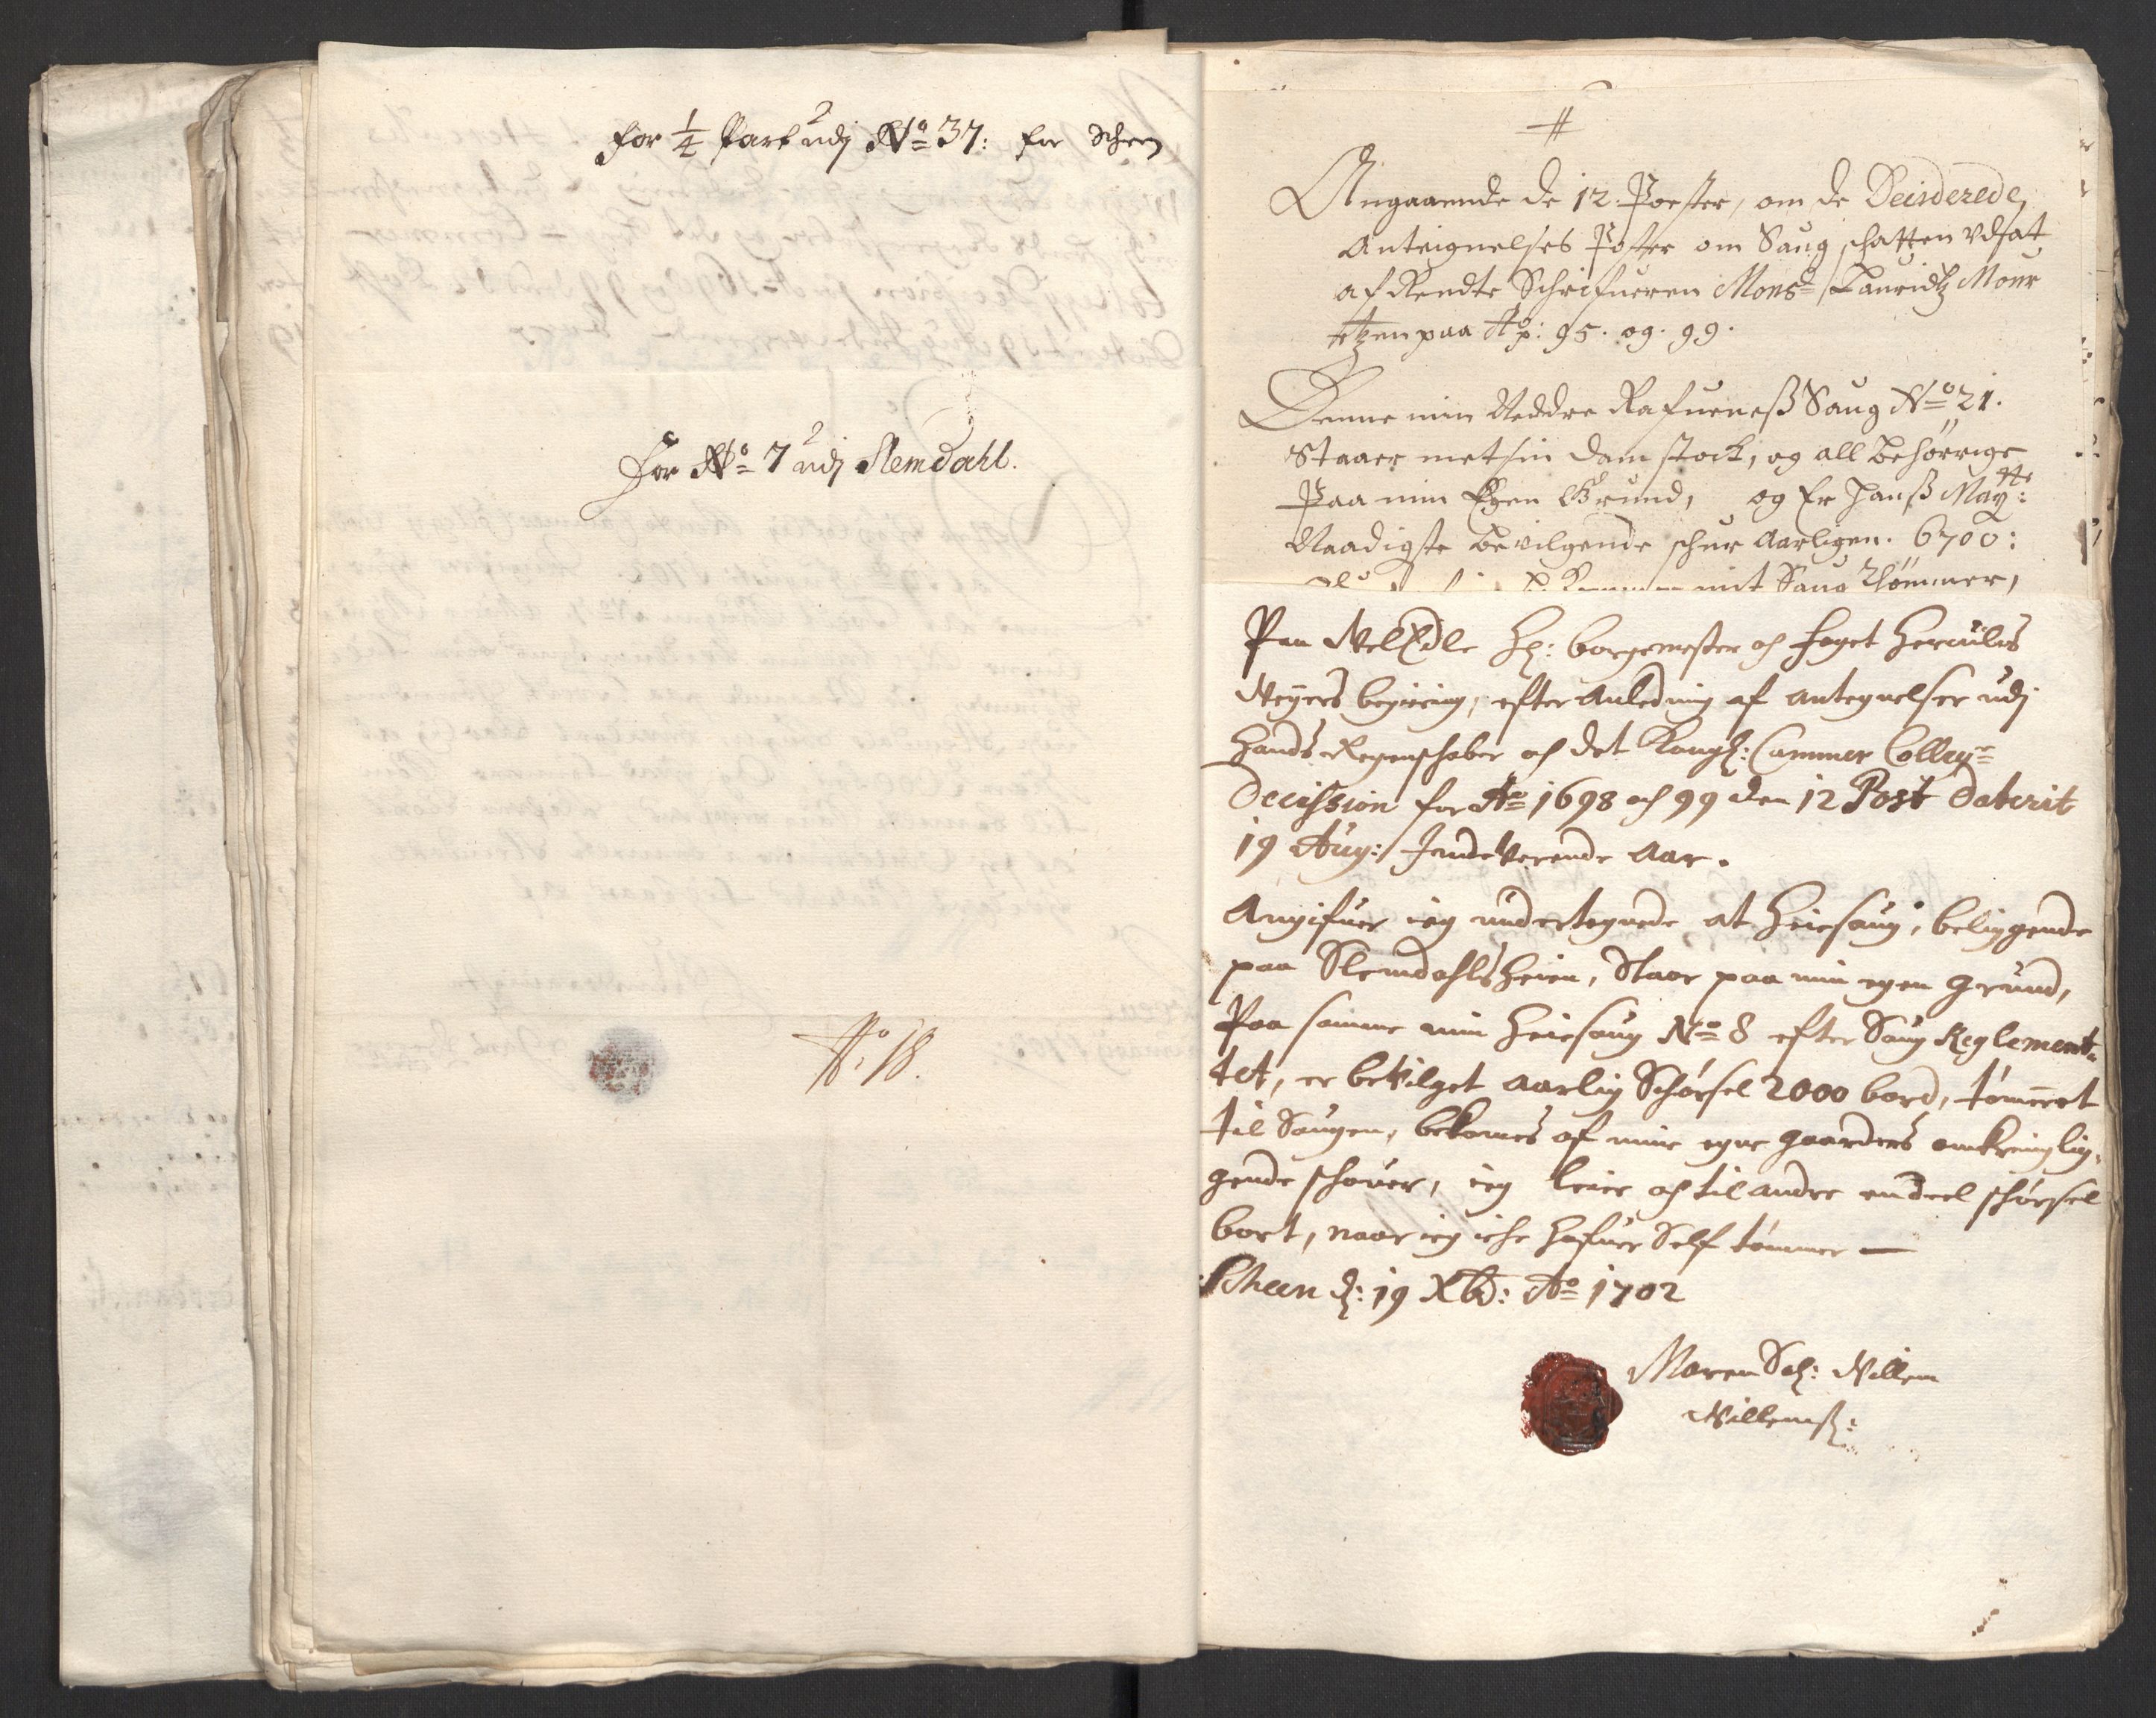 for 1/4 Part udj No 37: for Scheen
For No 7 udj Slemdahl.
No 18.
#
Angaaende de 12. Poster, om de Deciderede
Anteignelses Poster om Saug schatten vdsat
af Rendte Schrifueren Monsr Lauridtz Mour
itzen paa Ao: 95. og. 99.
Denne min Neddre Rafueneß Saug No 21.
Staaer met sin dam stock, og all behørrige
Paa min Egen Grund, og Er Hanß Mayttz:
Naadigste bevilgende schur Aarligen. 6700:
mit Saug Tømmer,
Paa WelEdle Hr: borgemester og foget Herculis
Weyers begiering, efter Anledning af antegnelser udj
Hands Regenschaber og det Kongl: Cammer Colleg=
Decission for Ao 1698 og 99 den 12 Post daterit
19 Aug: Indeverende Aar.
Angifuer ieg undertegnede at Heiesaug, beliggende
paa Slemdahls Heien, Staar paa min egen grund,
Paa samme min Heiesaug No 8 efter Saug Reglement=
tet, er bevilget aarlig Schørsel 2000 bord, tømret
til Saugen, bekomes af mine egne gaarders omkringlig,
gende schouer, ieg leier og til andre en deel schørsel
bort, naar ieg iche hafuer Self tømmer —
Scheen d: 19 Xbr: Ao 1702
Maren Sal: Willem
Willemß: